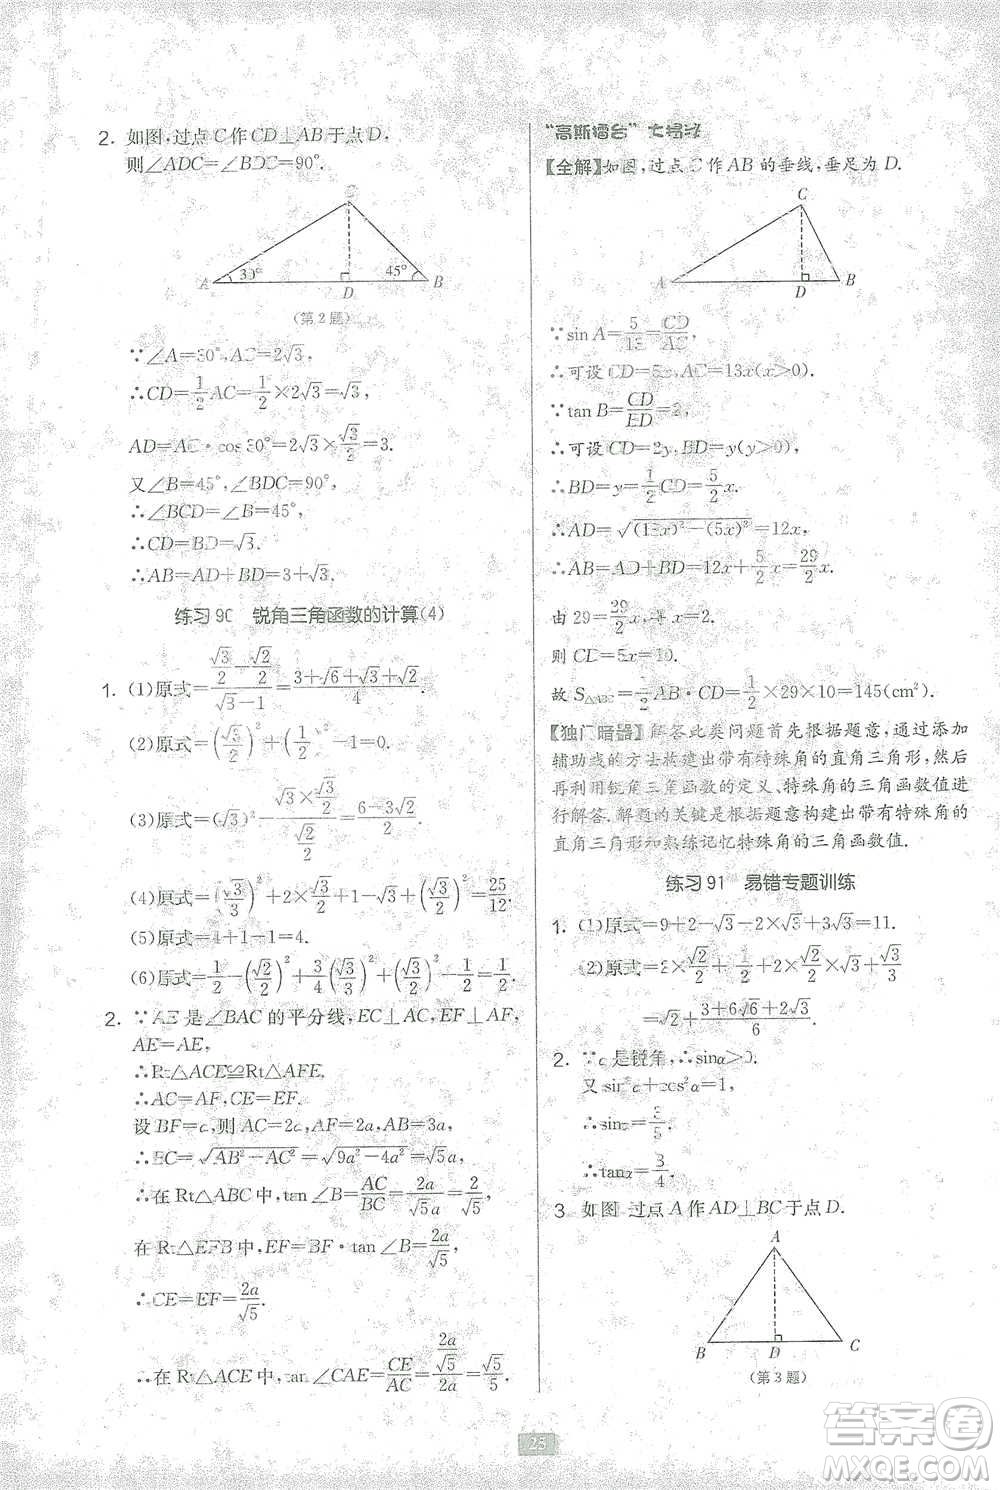 2. 如图,过点C作CD⊥AB于点D,
则∠ADC=∠BDC=90°.
C
A 30° 45° B
D
(第2题)
∵∠A=30°,AC=2√3,
∴CD=1/2 AC=1/2×2√3=√3,
AD=AC·cos30°=2√3×√3/2=3.
又∠B=45°,∠BDC=90°,
∴∠BCD=∠B=45°,
∴CD=BD=√3.
∴AB=AD+BD=3+√3.
练习90 锐角三角函数的计算(4)
1. (1)原式=(√3/2-√2/2)/(√3-1)=(3+√6+√3+√2)/4.
(2)原式=(√2/2)²+(1/√2)²-1=0.
(3)原式=(√3)²-(√3×√3/2)/(√2/2)=(6-3√2)/2.
(4)原式=(√3/3)²+2×1/2+(√3/2)²=25/12.
(5)原式=4+1-1=4.
(6)原式=1/2-(√2/2)²+3/4(√3/3)²+(√2/2)²=
2. ∵AE是∠BAC的平分线,EC⊥AC,EF⊥AF,
AE=AE,
∴Rt△ACE≌Rt△AFE.
∴AC=AF,CE=EF.
设BF=a,则AC=2a,AF=2a,AB=3a,
∴BC=√(AB²-AC²)=√(9a²-4a²)=√5a,
∴在Rt△ABC中,tan∠B=AC/BC=2a/√5a=2/√5,
在Rt△EFB中,EF=BF·tan∠B=2a/√5,
∴CE=EF=2a/√5.
∴在Rt△ACE中,tan∠CAE=CE/AC=(2a/√5)/2a=√5/5.
“高斯擂台”大揭秘
【全解】如图,过点C作AB的垂线,垂足为D.
C
A D B
∵sin A=5/13=CD/AC,
∴可设CD=5x,AC=13x(x>0).
∵tan B=CD/BD=2,
∴可设CD=2y,BD=y(y>0).
∴BD=y=1/2 CD=5/2 x.
∴AD=√((13x)²-(5x)²)=12x,
∴AB=AD+BD=12x+5/2 x=29/2 x.
由29=29/2 x,得x=2.
则CD=5x=10.
故S△ABC=1/2 AB·CD=1/2×29×10=145(cm²).
【独门暗器】解答此类问题首先根据题意,通过添加
辅助线的方法构建出带有特殊角的直角三角形,然
后再利用锐角三角函数的定义、特殊角的三角函数值
进行解答.解题的关键是根据题意构建出带有特殊角的
直角三角形和熟练记忆特殊角的三角函数值.
练习91 易错专题训练
1. (1)原式=9+2-√3-2×√3+3√3=11.
(2)原式=2×√2/2+1/2×√2/2
=√2+(3+6√6+2√3)/6.
2. ∵α是锐角,∴sinα>0.
又sin²α+cos²α=1,
∴sinα=3/5.
∴tanα=3/4.
3 如图 过点A作AD⊥BC于点D.
A
B D C
(第3题)
25
答案卷
MXQE.COM